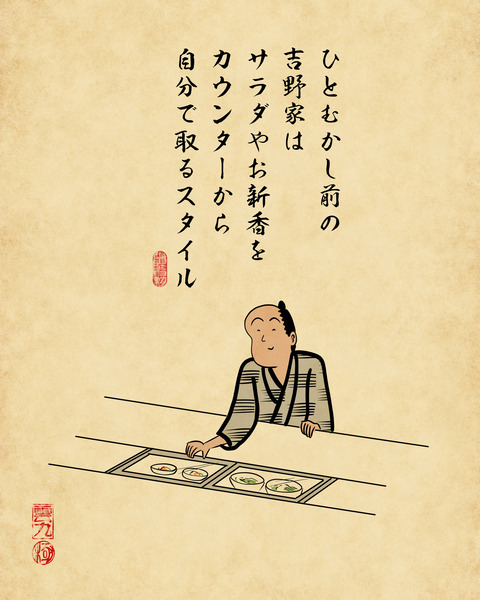 ひとむかし前の
吉野家は
サラダやお新香を
カウンターから
自分で取るスタイル